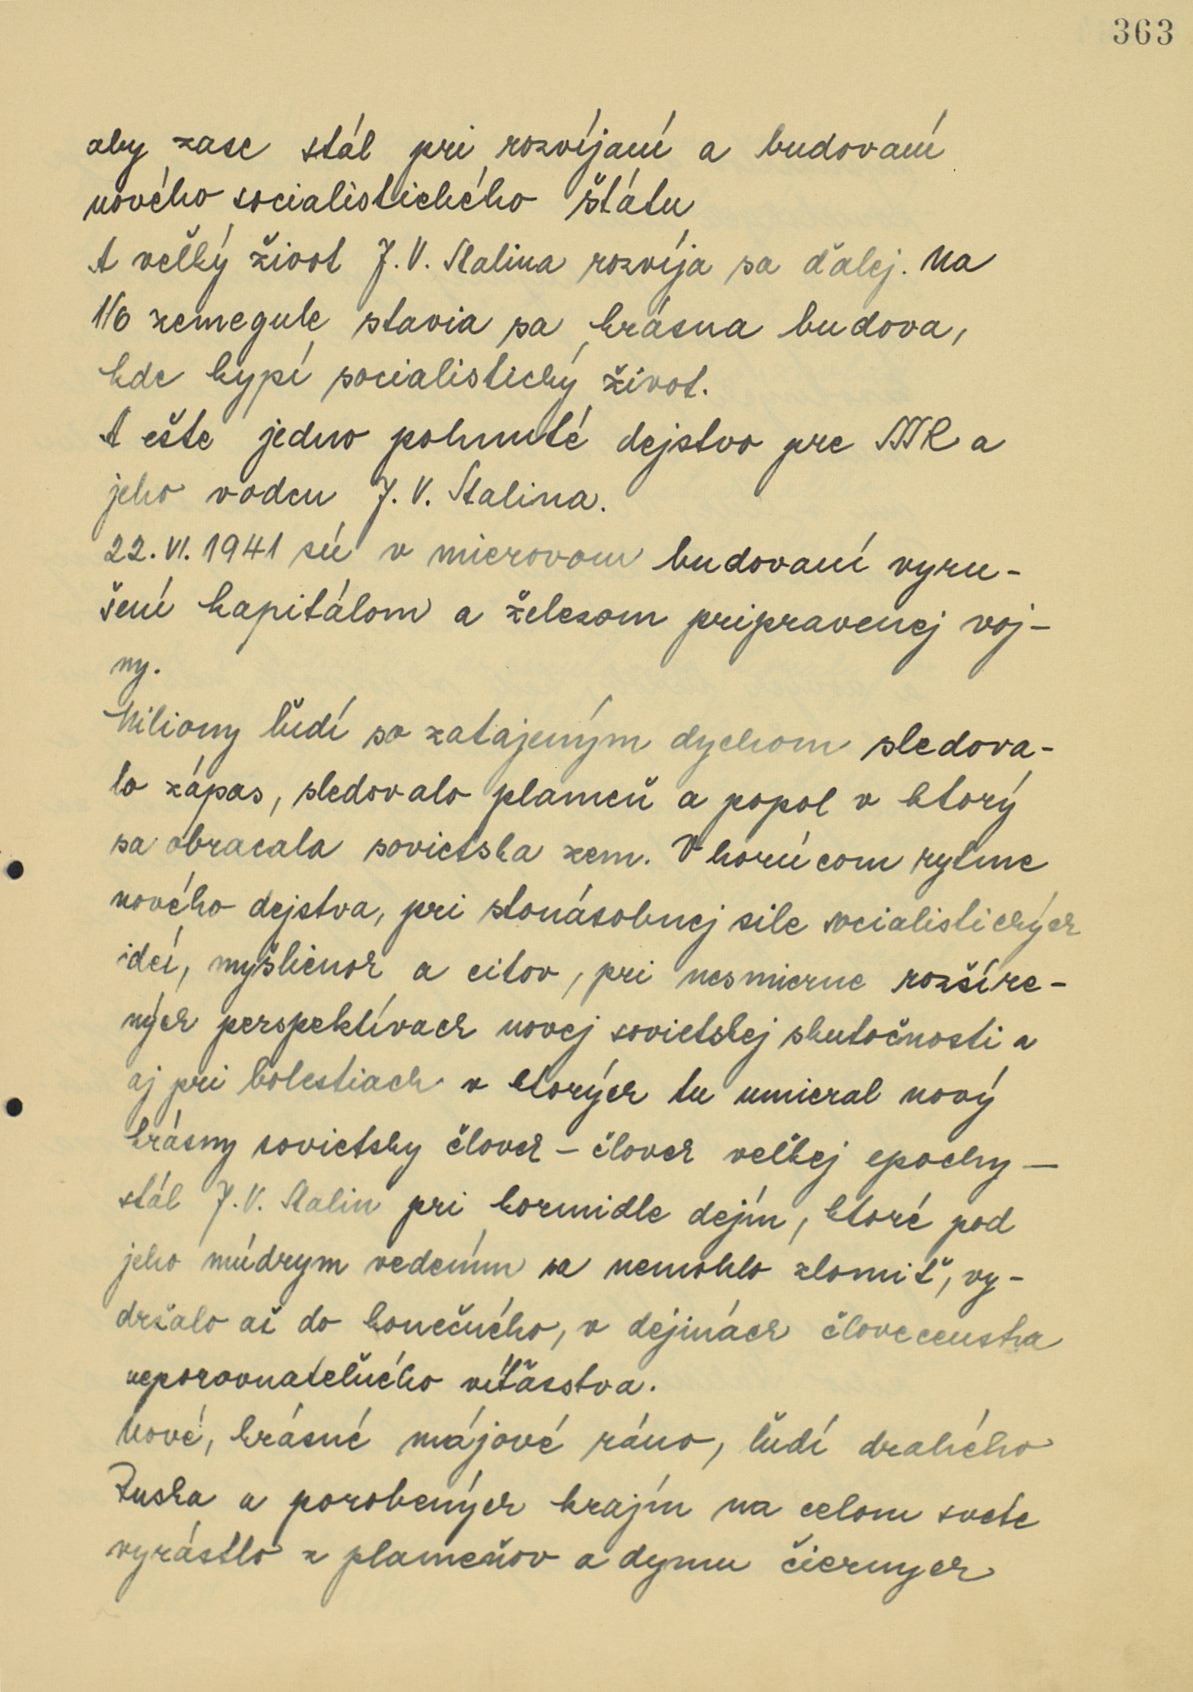 363
aby zase stál pri rozvíjaní a budovaní
nového socialistického štátu
A veľký život J. V. Stalina rozvíja sa ďalej. Na
1/6 zemegule stavia sa krásna budova,
kde kypí socialistický život.
A ešte jedno pohnuté dejstvo pre SSSR a
jeho vodcu J. V. Stalina.
22. VI. 1941 sú v mierovom budovaní vyru-
šení kapitálom a železom pripravenej voj-
ny.
Miliony ľudí so zatajeným dychom sledova-
lo zápas, sledovalo plameň a popol v ktorý
sa obracala sovietska zem. V horúcom rytme
nového dejstva, pri stonásobnej sile socialistických
ideí, myšlienok a citov, pri nesmierne rozšíre-
ných perspektívach novej sovietskej skutočnosti a
aj pri bolestiach v ktorých tu umieral nový
krásny sovietsky človek – človek veľkej epochy –
stál J. V. Stalin pri kormidle dejín, ktoré pod
jeho múdrym vedením sa nemohlo zlomiť, vy-
držalo až do konečného, v dejinách človecenstva
neporovnateľného víťazstva.
Nové, krásné májové ráno, ľudí drahého
Ruska a porobených krajín na celom svete
vyrástlo z plameňov a dymu čiernych